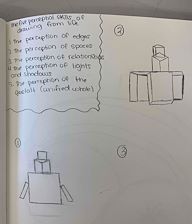 The five perceptual skills of
drawing from life
1. The perception of edges
2. The perception of spaces
3. The perception of relationships
4. The perception of lights
and shadows
5. The perception of the
gestalt (unified whole)
①
②
③